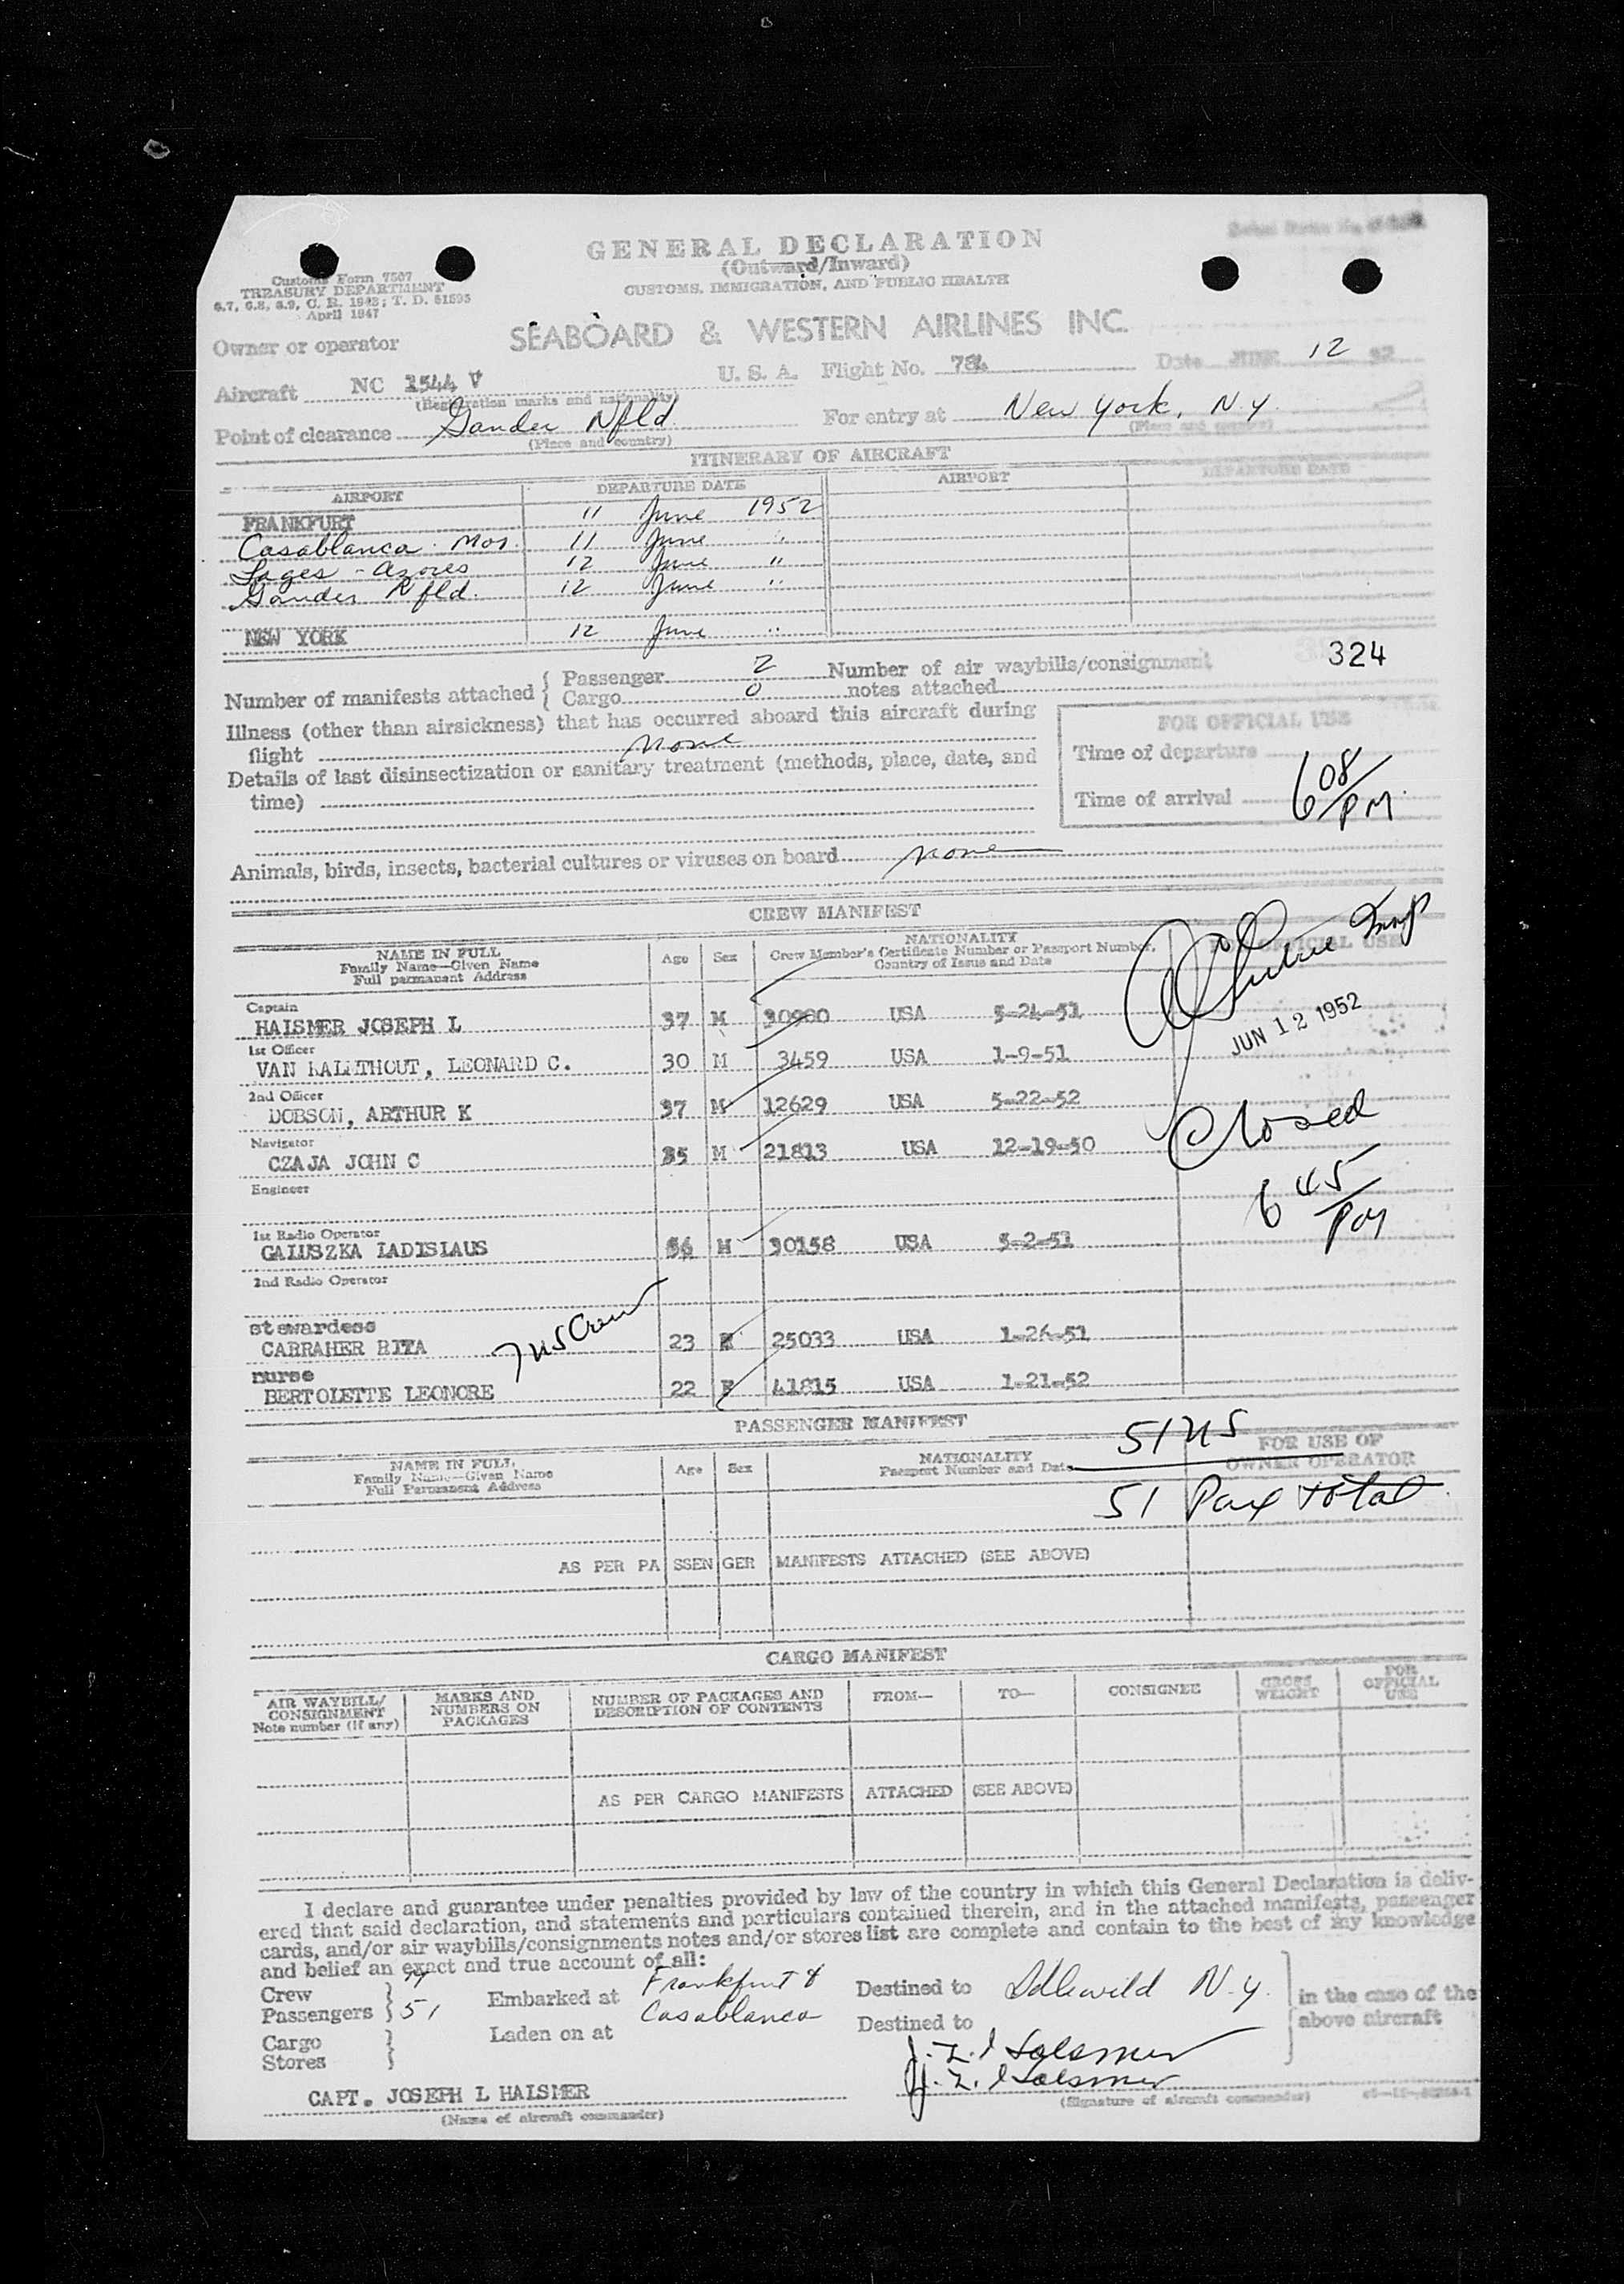 GENERAL DECLARATION
(Outward/Inward)
CUSTOMS, IMMIGRATION, AND PUBLIC HEALTH
Customs Form 7507
TREASURY DEPARTMENT
6.7, 6.8, 6.9, C. R. 1943; T. D. 51595
April 1947
SEABOARD & WESTERN AIRLINES INC.
Owner or operator
Aircraft NC 1544 V U. S. A. Flight No. 784 Date JUNE 12 52
(Registration marks and nationality)
Point of clearance Gander Nfld. For entry at New York, N.Y.
(Place and country) (Place and country)
ITINERARY OF AIRCRAFT
AIRPORT DEPARTURE DATE AIRPORT DEPARTURE DATE
FRANKFURT 11 June 1952
Casablanca Mor. 11 June "
Lages - Azores 12 June "
Gander Nfld. 12 June "
NEW YORK 12 June "
324
Number of manifests attached { Passenger 2 Number of air waybills/consignment
Cargo 0 notes attached
Illness (other than airsickness) that has occurred aboard this aircraft during
flight none
Details of last disinsectization or sanitary treatment (methods, place, date, and
time)
FOR OFFICIAL USE
Time of departure
Time of arrival 6 08/PM.
Animals, birds, insects, bacterial cultures or viruses on board none
CREW MANIFEST
NAME IN FULL
Family Name—Given Name
Full permanent Address
Age Sex
NATIONALITY
Crew Member's Certificate Number or Passport Number,
Country of Issue and Date
FOR OFFICIAL USE
Captain
HAISMER JOSEPH L 37 M 30980 USA 5-24-51
JUN 12 1952
1st Officer
VAN KALMTHOUT, LEONARD C. 30 M 3459 USA 1-9-51
2nd Officer
DOBSON, ARTHUR K 37 M 12629 USA 5-22-52
Closed
Navigator
CZAJA JOHN C 35 M 21813 USA 12-19-50
Engineer
6 45/PM
1st Radio Operator
GALUSZKA LADISLAUS 56 M 30158 USA 5-2-51
2nd Radio Operator
stewardess
CARRAHER RITA 7 US Crew 23 F 25033 USA 1-26-51
nurse
BERTOLETTE LEONORE 22 F 41815 USA 1-21-52
PASSENGER MANIFEST
51 US
NAME IN FULL
Family Name—Given Name
Full Permanent Address
Age Sex
NATIONALITY
Passport Number and Date
FOR USE OF
OWNER OPERATOR
51 Pax total
AS PER PASSENGER MANIFESTS ATTACHED (SEE ABOVE)
CARGO MANIFEST
AIR WAYBILL/
CONSIGNMENT
Note number (if any)
MARKS AND
NUMBERS ON
PACKAGES
NUMBER OF PACKAGES AND
DESCRIPTION OF CONTENTS
FROM—
TO—
CONSIGNEE
GROSS
WEIGHT
FOR
OFFICIAL
USE
AS PER CARGO MANIFESTS ATTACHED (SEE ABOVE)
I declare and guarantee under penalties provided by law of the country in which this General Declaration is deliv-
ered that said declaration, and statements and particulars contained therein, and in the attached manifests, passenger
cards, and/or air waybills/consignments notes and/or stores list are complete and contain to the best of my knowledge
and belief an exact and true account of all:
Crew 7
Passengers 51 Embarked at Frankfurt & Casablanca Destined to Idlewild N.Y. in the case of the
Cargo Laden on at Destined to above aircraft
Stores
CAPT. JOSEPH L HALSMER
(Name of aircraft commander)
J. L. Halsmer
J. L. Halsmer
(Signature of aircraft commander)